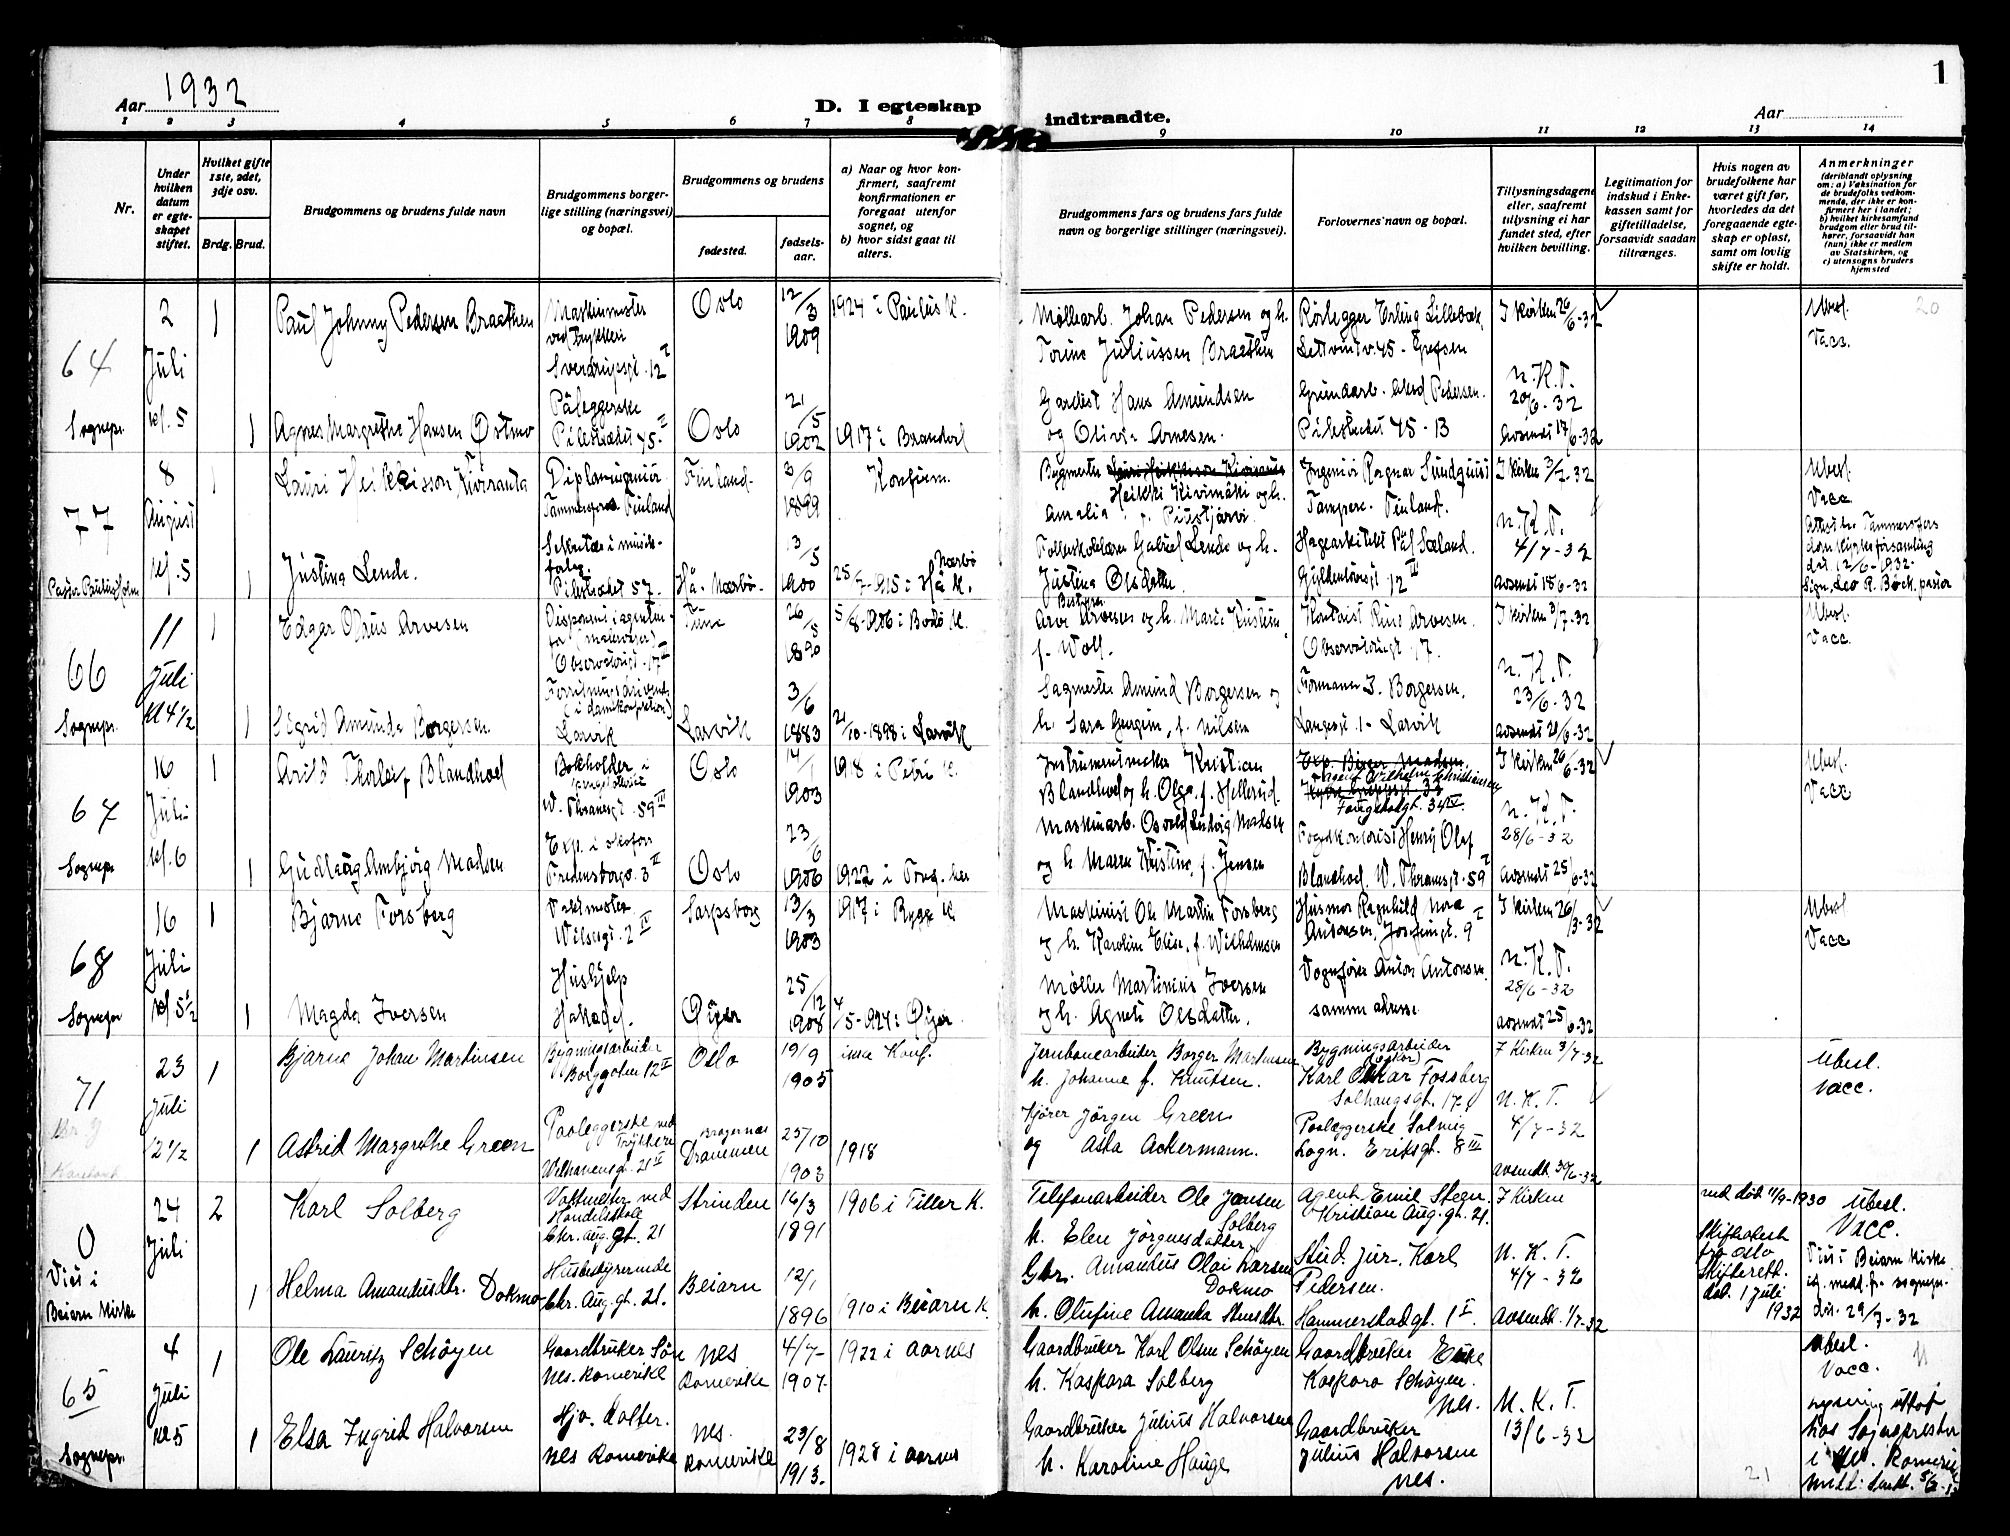 1
Aar 1932
D. I egteskap
indtraadte.
Aar
1 2 3 4 5 6 7 8 9 10 11 12 13 14
Nr.
Under hvilken datum er egteskapet stiftet.
Hvilket gifte 1ste, 2det, 3dje osv.
Brdg. Brud.
Brudgommens og brudens fulde navn
Brudgommens borgerlige stilling (næringsvei) og bopæl.
Brudgommens og brudens
fødested.
fødselsaar.
a) Naar og hvor konfirmert, saafremt konfirmationen er foregaat utenfor sognet, og
b) hvor sidst gaat til alters.
Brudgommens fars og brudens fars fulde navn og borgerlige stillinger (næringsvei).
Forlovernes navn og bopæl.
Tillysningsdagene eller, saafremt tillysning ei har fundet sted, efter hvilken bevilling.
Legitimation for indskud i Enkekassen samt for giftetilladelse, forsaavidt saadan tiltrænges.
Hvis nogen av brudefolkene har været gift før, hvorledes da det foregaaende egteskap er opløst, samt om lovlig skifte er holdt.
Anmerkninger (deriblandt oplysning om: a) Vaksination for de brudefolks vedkommende, der ikke er konfirmert her i landet; b) hvilket kirkesamfund brudgom eller brud tilhører, forsaavidt han (hun) ikke er medlem av Statskirken, og c) utensogns bruders hjemsted
64
2 Juli kl. 5
Sognepr.
1 Paul Johnny Pedersen Braathen
Maskinmester ved trykkeri
Sverdrupsgt. 12 I
Oslo
12/3 1909
1924 i Paulus K.
Møllearb. Johan Pedersen og h.
Torine Juliussen Braathen
Rørlegger Erling Lillebæk,
Lettvintv. 45 - Grefsen
I Kirken 26/6-32
Ubesl.
Vacc.
20
1 Agnes Margrethe Hansen Østmo
Påleggerske
Pilestrædet 45 II
Oslo
21/5 1902
1917 i
Gardist Hans Amundsen
og Olivia Arnesen.
Grundarb. Aksel Pedersen.
Pilestrædet 45 - 13
N. K. T.
20/6-32
Avsendt 17/6-32
77
8 August kl. 5
Pastor Paulus Holm
1 Lauri Heikkisson Kiviranta
Diplomingeniør
Tammerfors Finland
Finland
3/9 1899
Konfirm.
Bygmester
Heikki Kivimäki og h.
Amalia f. Piustjärvi
Ingeniør Ragnar Sundquist
Tampere. Finland.
I Kirken 3/7-32
Ubesl.
Vacc
Attest fra Tammerfors
dom kyrkoförsamling
dat. 12/6-1932.
Sign. Leo R. Böck, pastor
1 Justina Lende.
Sekretær i musikforlag.
Pilestrædet 57.
Hå. Nærbø.
13/5 1900
25/7-1915 i Hå K. Nærbø
Folkeskolelærer Gabriel Lende og h.
Justina Olsdatter
Hagearkitekt Pål Sæland.
Gyldenløvesgt 12 III
N. K. T.
4/7-32
avsendt 18/6-32
66
11 Juli kl 4 1/2
Sognepr.
1 Edgar Olaus Arvesen
Disponent i agenturfa
Observatoriegt. 17 II
Tune
26/5 1890
5/8-1906 i Bodø K.
Bestyrer
Arve Arvesen og h. Marie Kristine
f. Wolf.
Kontorist Rius Arvesen.
Observatoriegt. 17.
I Kirken 3/7-32
Ubesl.
Vacc.
1 Sigrid Amunda Borgersen
(i damekonfektion)
Larvik
Larvik
3/6 1883
2/10-1898 i Larvik
Sagmester Amund Borgersen og
h. Sara Gurgine, f. Nilsen
Formann I. Borgersen.
Langesgt. 1 - Larvik
N. K. T.
23/6-32
avsendt 21/6-32
67
16 Juli kl. 6
Sognepr.
1 Arild Thorleif Blandhoel
Bokholder i
W. Thranesgt. 59 III
Oslo
14/1 1903
1918 i Petri K.
Instrumentmaker Kristian
Blandhoel og h. Olga, f. Hellerud.
Exp. Birger Madsen
Agent Vilhelm Christiansen
34 IV.
I Kirken 26/6-32
Ubesl.
Vacc
1 Gudlaug Ambjørg Madsen
Exp. i skoforr.
Fredensborgv. 3 II
Oslo
23/6 1906
1922 i Trog. her
Maskinarb. Osvald Ludvig Madsen
og h. Maren Kristine, f. Jensen
Fogdkontorist Henry Olaf
Blandhoel. W. Thranesgt. 59 I
N. K. T.
28/6-32
avsendt 25/6-32
68
16 Juli kl. 5 1/2
Sognepr
1 Bjarne Forsberg
Vaktmester
Wilsesgt. 2 IV
Sarpsborg
13/3 1903
1917 i Rygge K
Maskinist Ole Martin Forsberg
og h. Karoline Elise, f. Wilhelmsen
Husmor Ragnhild Nora
Antonsen, Josefinesgt. 9 I
I Kirken 26/3-32
Ubesl
Vacc
1 Magda Iversen
Hushjelp
Hakadal.
Øyer
25/12 1908
4/5-1924 i Øyer.
Møller Martinius Iversen
og h. Agnete Olsdatter.
Vognfører Anton Antonsen.
samme adresse
N. K. T.
28/6-32
avsendt 25/6-32
71
23 Juli 12 1/2
1 Bjarne Johan Martinsen
Bygningsarbeider
Borggaten 12 II
Oslo
19/9 1905
ikke Konf.
Jernbanearbeider Borger Martinsen
h. Johanne f. Knutsen.
Bygningsarbeider
Karl Oskar Fossberg (Oskar)
Solhaugsgt. 17.
I Kirken 3/7-32
Ubesl.
Vacc.
1 Astrid Margrethe Green
Paaleggerske ved Trykkeri
Welhavensgt. 21 II
Bragernes
Drammen
25/10 1903
1918
Kjører Jørgen Green
og Asta Ackermann.
Paaleggerske Solveig
Logn. Eriksgt. 8 III
N. K. T.
4/7-32
avsendt. 30/6-32
0
Viet i
Beiarn Kirke
24 Juli
2 Karl Solberg
Vaktmester ved
Handelsskole
Chr. Aug. gt. 21
Strinden
16/3 1891
1906 i Tiller K.
Telefonarbeider Ole Jensen Solberg
h. Elen Jørgensdatter
Agent Emil Stegn.
Kristian Aug. gt. 21.
I Kirken
ved død 11/9-1930
Skifteattest
fra Oslo
Skifterett.
dat. 1 juli
1932
Ubesl.
Vacc.
Viet i Beiarn Kirke
ifg. medd. fr. sognepr.
dat. 29/7-32
1 Helma Amandusdtr. Dokmo
Husbestyrerinde
Chr. Aug. gt. 21.
Beiarn
12/1 1896
1910 i Beiarn K
Gbr. Amandus Olai Larsen Dokmo
h. Olufine Amanda Stensdtr.
Stud. jur. Karl
Pedersen.
Hammerstadgt. 1 I.
N. K. T.
4/7-32
Avsendt. 1/7-32
65
4 Juli kl 5
Sognepr.
1 Ole Lauritz Schøyen
Gaardbruker Søn
Nes. Romerike
Nes Romerike
4/7- 1907
1922 i Aarnes
Gaardbruker Karl Olsen Schøyen
h. Kaspara Solberg
Gaardbruker Enke
Kaspara Schøyen.
Nes.
Ubesl.
Vacc.
Lysning uttat
hos Sognepresten
i Nes. Romerike
medd. Sendt. 5/6
1 Elsa Ingrid Halvorsen
Hjv. datter.
Nes Romerike
Nes. Romerike
23/8 1913.
1928 i Aarnes
Gaardbruker Julius Halvorsen
h. Karoline Hauge
Gaardbruker
Julius Halvorsen
Nes.
N. K. T.
13/6-32
21